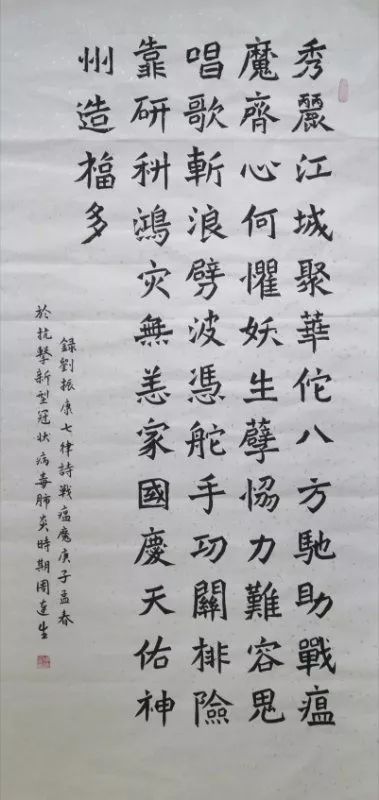 秀麗江城聚華佗八方馳助戰瘟
魔齊心何懼妖生孽恊力難容鬼
唱歌斬浪劈波憑舵手功關排險
靠研科鴻灾無恙家國慶天佑神
州造福多
錄劉振康七律詩戰瘟魔庚子孟春
於抗擊新型冠狀病毒肺炎時期周連生